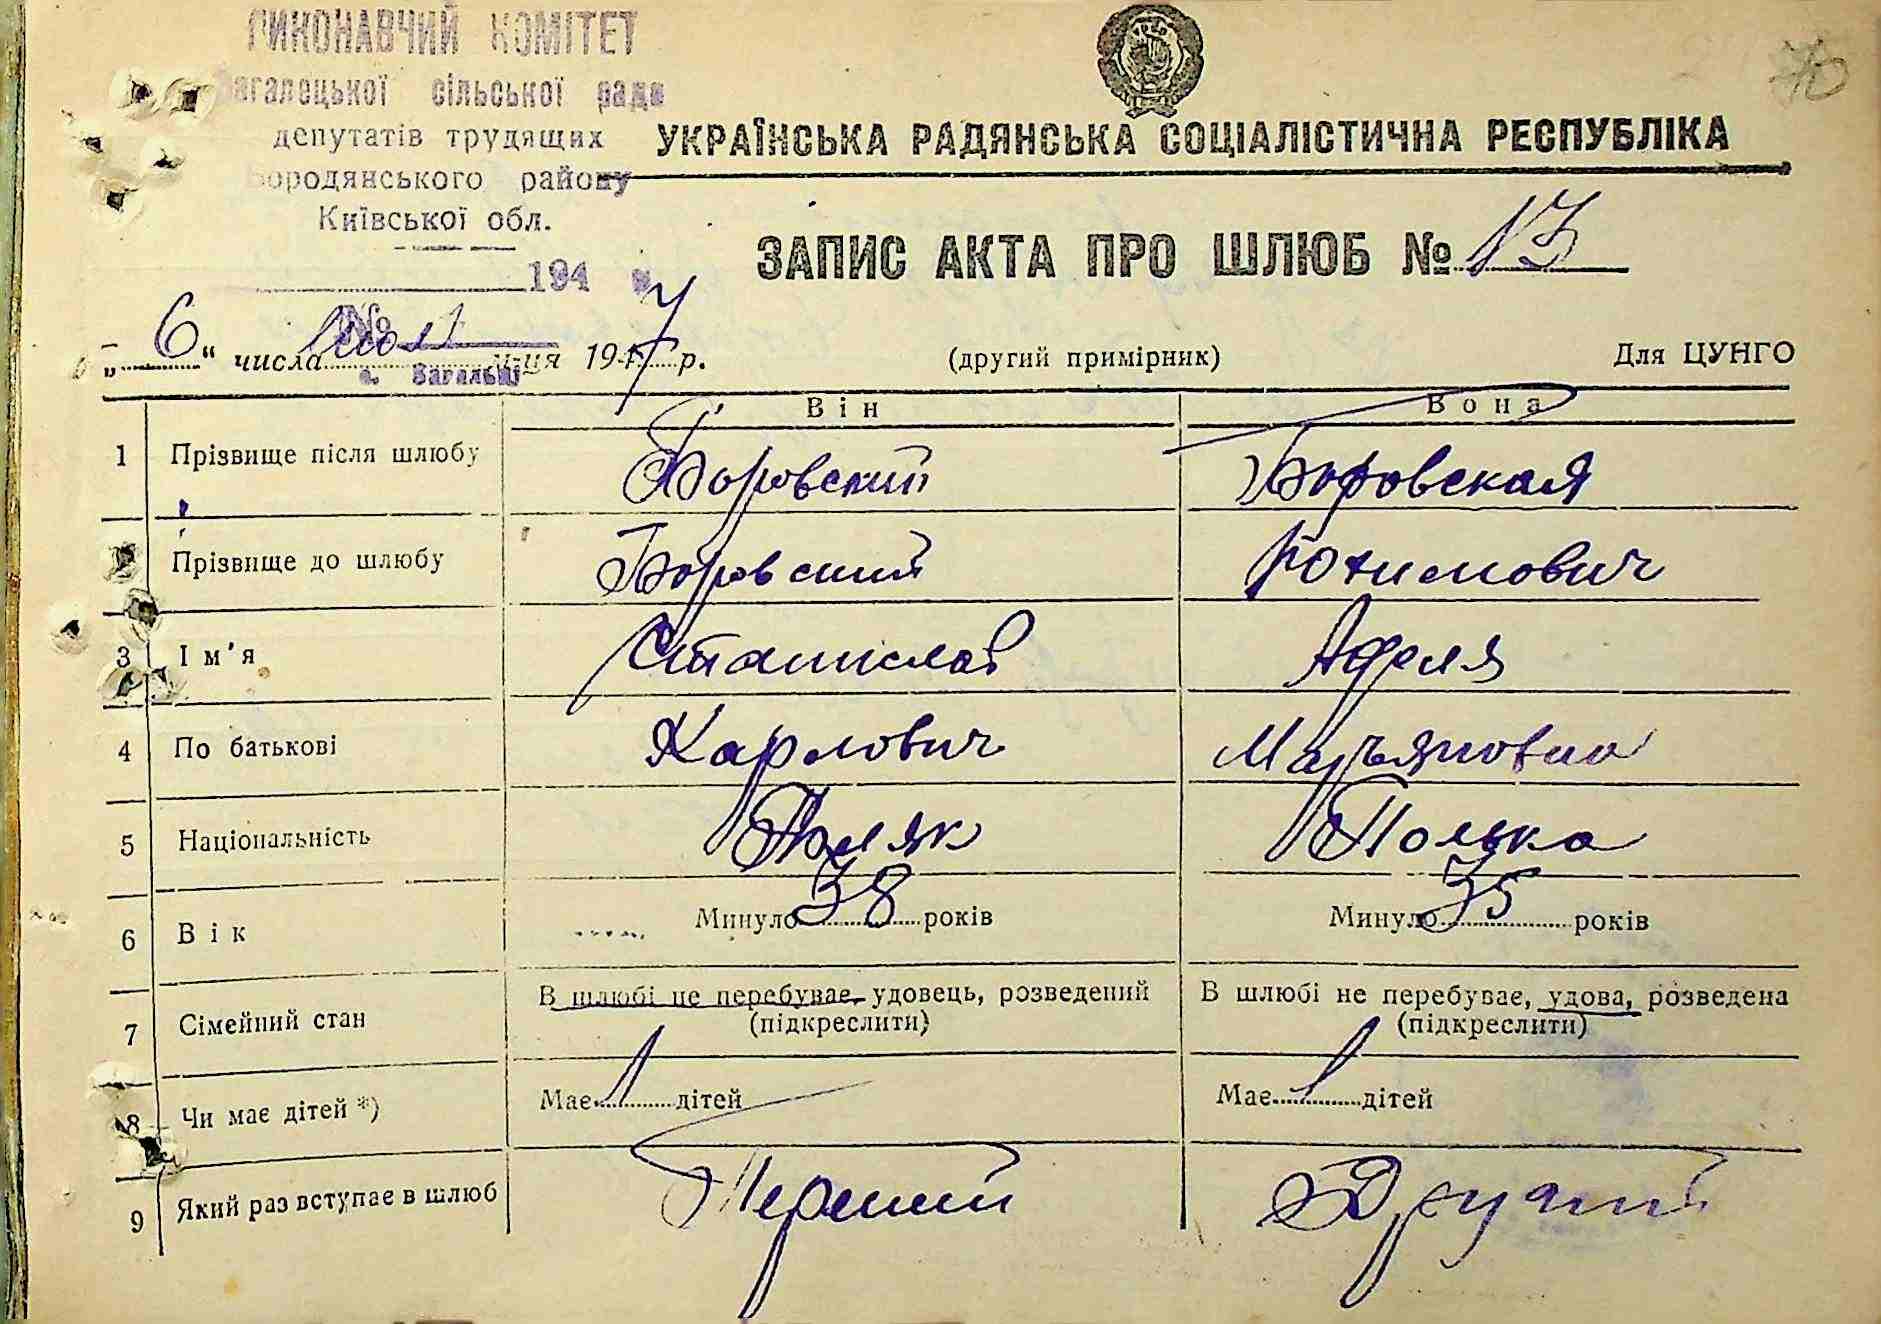 ВИКОНАВЧИЙ КОМІТЕТ
Загалецької сільської ради
депутатів трудящих
Бородянського району
Київської обл.
194 р.
№
с. Загальці
УКРАЇНСЬКА РАДЯНСЬКА СОЦІАЛІСТИЧНА РЕСПУБЛІКА
ЗАПИС АКТА ПРО ШЛЮБ № 13
„6“ числа м-ця 1947 р. (другий примірник) Для ЦУНГО
Він Вона
1 Прізвище після шлюбу Боровский Боровская
Прізвище до шлюбу Боровский
3 Ім'я Станислав Аделя
4 По батькові Карлович Марьяновна
5 Національність Поляк Полька
6 Вік Минуло 38 років Минуло 35 років
7 Сімейний стан В шлюбі не перебуває, удовець, розведений В шлюбі не перебуває, удова, розведена
(підкреслити) (підкреслити)
8 Чи має дітей *) Має 1 дітей Має 1 дітей
9 Який раз вступає в шлюб Перший Другий